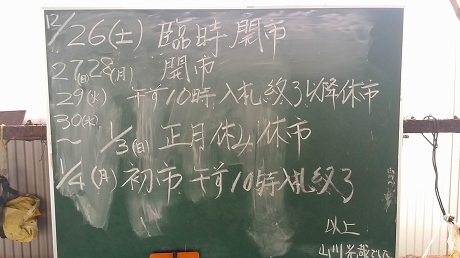 12/26(土) 臨時開市
27(日)28(月) 開市
29(火) 午前10時入札終了以降休市
30(水)
～ 1/3(日) 正月休み 休市
1/4(月) 初市 午前10時入札終了
以上
山川